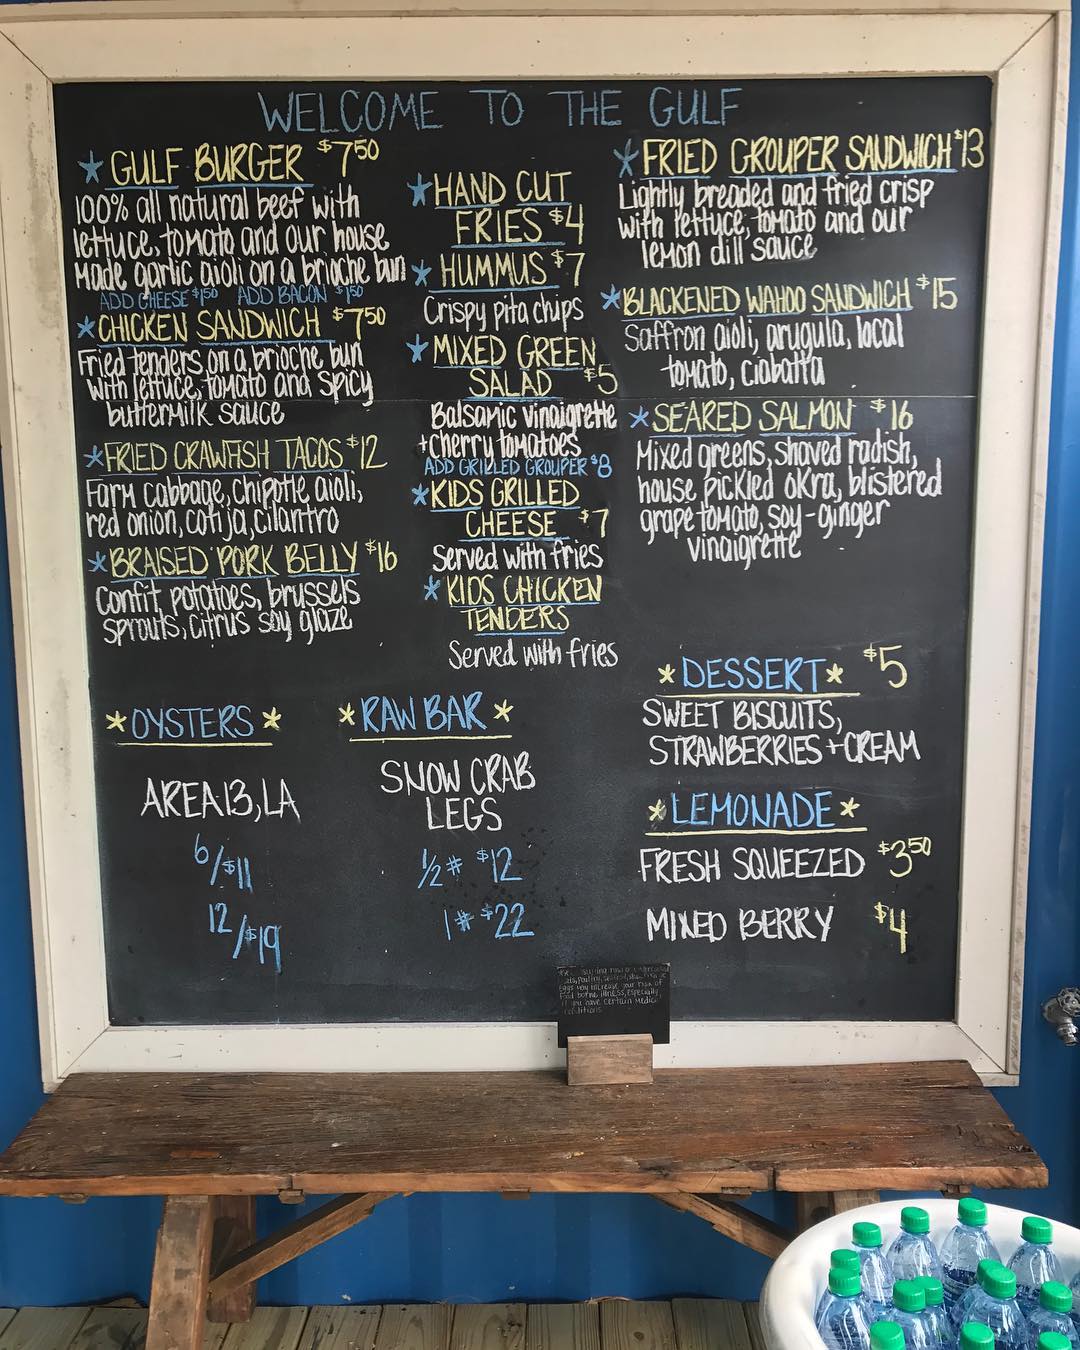 WELCOME TO THE GULF
*GULF BURGER $7 50
100% all natural beef with
lettuce, tomato and our house
made garlic aioli on a brioche bun
ADD CHEESE $1 50 ADD BACON $1 50
*CHICKEN SANDWICH $7 50
Fried tenders on a brioche bun
with lettuce, tomato and spicy
buttermilk sauce
*FRIED CRAWFISH TACOS $12
Farm cabbage, chipotle aioli,
red onion, cotija, cilantro
*BRAISED PORK BELLY $16
Confit potatoes, brussels
sprouts, citrus soy glaze
*HAND CUT
FRIES $4
*HUMMUS $7
Crispy pita chips
*MIXED GREEN
SALAD $5
Balsamic vinaigrette
+cherry tomatoes
ADD GRILLED GROUPER $8
*KIDS GRILLED
CHEESE $7
Served with fries
*KIDS CHICKEN
TENDERS
Served with fries
*FRIED GROUPER SANDWICH $13
Lightly breaded and fried crisp
with lettuce, tomato and our
lemon dill sauce
*BLACKENED WAHOO SANDWICH $15
Saffron aioli, arugula, local
tomato, ciabatta
*SEARED SALMON $16
Mixed greens, shaved radish,
house pickled okra, blistered
grape tomato, soy-ginger
vinaigrette
*OYSTERS*
AREA 13, LA
6/$11
12/$19
*RAW BAR*
SNOW CRAB
LEGS
1/2# $12
1# $22
*DESSERT* $5
SWEET BISCUITS,
STRAWBERRIES + CREAM
*LEMONADE*
FRESH SQUEEZED $3 50
MIXED BERRY $4
raw or undercooked
eggs may increase your risk of
food borne illness, especially
if you have certain medical
conditions